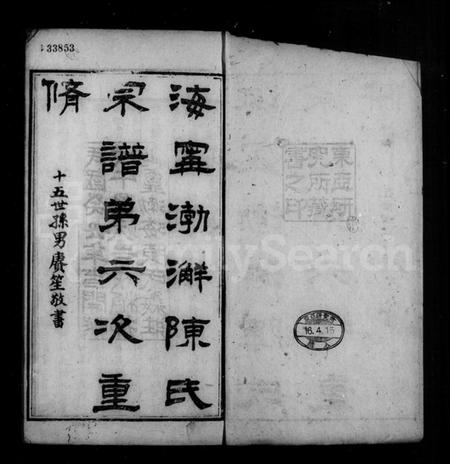 33853
海寧渤澥陳氏
宗譜弟六次重
脩
十五世孫男賡笙敬書
東亞研
究所藏
書之印
16.4.15
FamilySearch